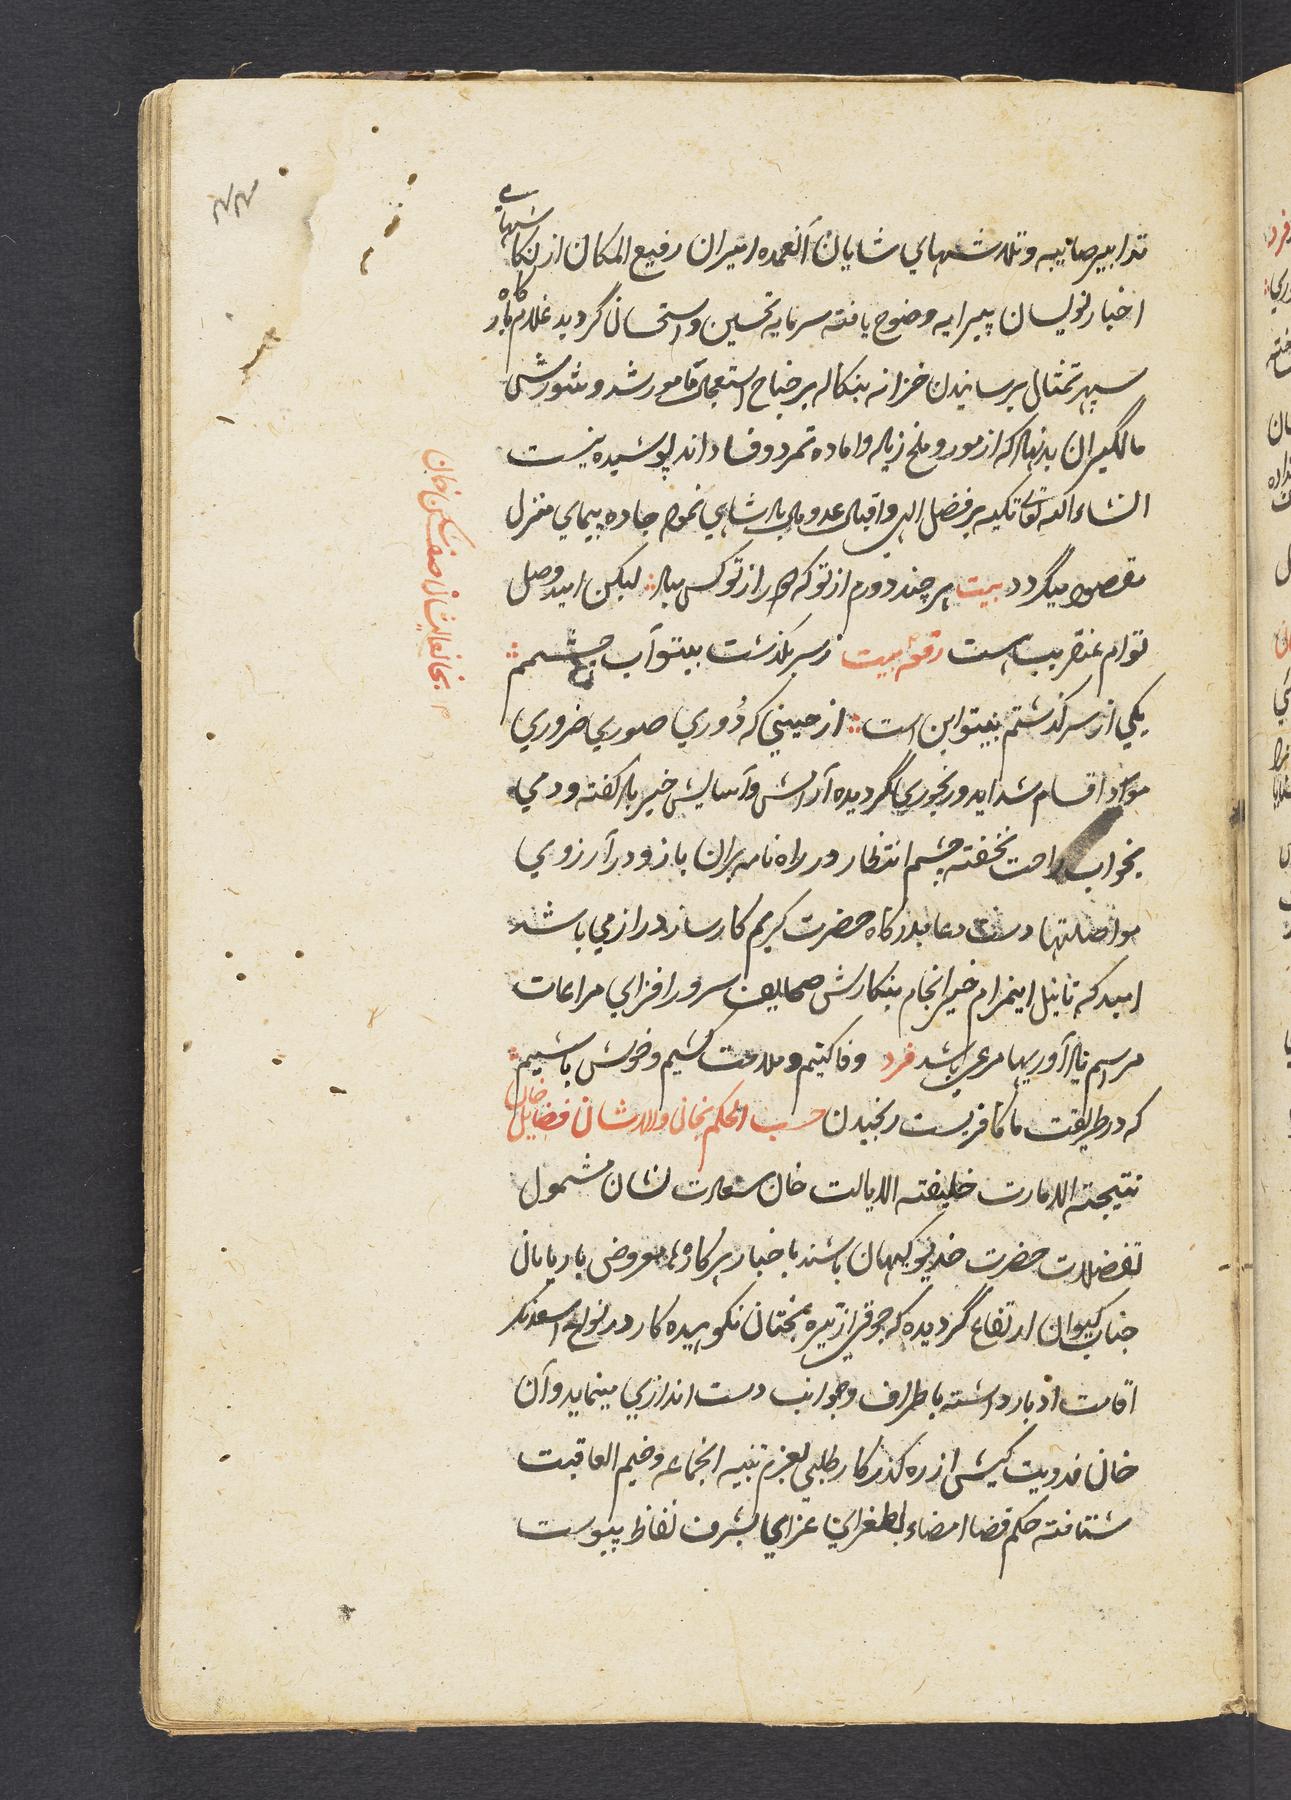 تدابیر صائبه و تلاشهاي شایان آنعمده امیران رفیع المکان از نکا شتهای
اخبار نویسان پیرایه وضوح یافته سرمایه تحسین و استحسان گردید غلام بارگاه
سپهر تمثال برسانیدن خزانه بنکاله بر جناح استعجال مامور شد و شورش
مالگیران بدنهاد که از مور و ملخ زیاده و اماده تمرد و فساد اند پوشیده نیست
انشاء الله تعالی تکیه بر فضل الهی و اقبال عدو مال پادشاهي نموده جاده پیماي منزل
مقصود میگردد بیت هر چند دورم از تو که دور از تو کس مباد لیکن امید وصل
توام عنقریب است رقعه بیت ز سر بگذشت بیتو آب چشمم
یکي از سرگذشتم بیتو این است از حیني که دُوري صوري ضروري
مواد اقسام شداید و رنجوري گردیده آرامش و آسایش خیرباد گفته و دمي
بخواب راحت نخفته چشم انتظار در راه نامه بران باز و در آرزوي
مواصلتها دست دعا بدرگاه حضرت کریم کارساز دراز مي باشد
امید که تا نیل اینمرام خیر انجام بنکارش صحایف سرور افزاي مراعات
مراسم یاد آوریها مرعي باشد فرد وفا کنیم و ملامت کشیم و خوش باشیم
که در طریقت ما کافریست رنجیدن حسب الحکم بخان والاشان فضایل خان
نتیجته الامارت خلیفته الایالت خان سعادت نشان مشمول
تفضلات حضرت خدیو کیهان باشند باخبار هرکارها معروض باریابان
جناب کیوان ارتفاع گردیده که جوقي از تیره بختان نکوهیده کار در نواح
اقامت ادبار داشته باطراف و جوانب دست اندازي مینماید و آن
خان فدویت کیش از ره گذر کار طلبي بعزم تنبیه انجماعه وخیم العاقبت
شتافته حکم قضا امضاء بطغراي غراي شرف نفاذ پیوست
بخانعالیشان صفشکن خان